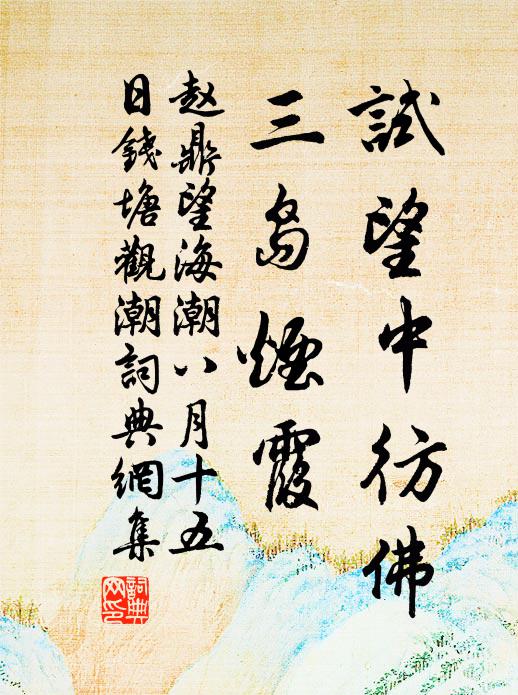 試望中彷佛
三島煙霞
赵鼎望海潮八月十五
日錢塘觀潮詞典網集
詞典
网印